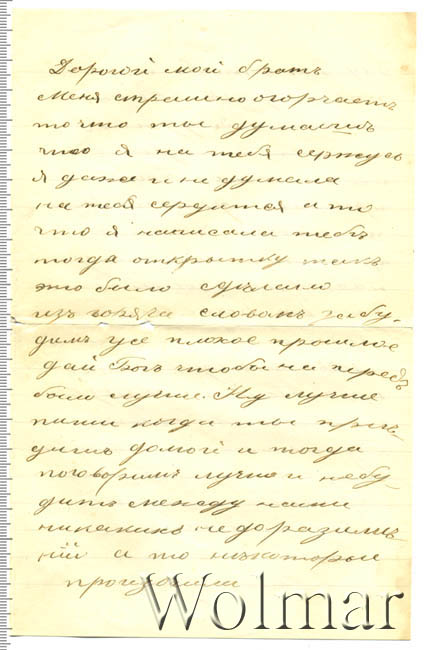 Дорогой мой братъ
Меня страшно огорчаетъ
то что ты думаешь
что я на тебя сержусь
я даже и не думала
на тебя сердится а то
что я написала тебѣ
тогда открытку такъ
это было сдѣлано
словомъ забу-
димъ усе плохое прошлое
дай Богъ чтобы на передъ
было лучше. Ну лучше
пиши когда ты прі-
дишь домой и тогда
поговоримъ лучше и небу
дитъ между нами
никакихъ недоразумѣ
ній а то нѣкоторые
произошли
Wolmar